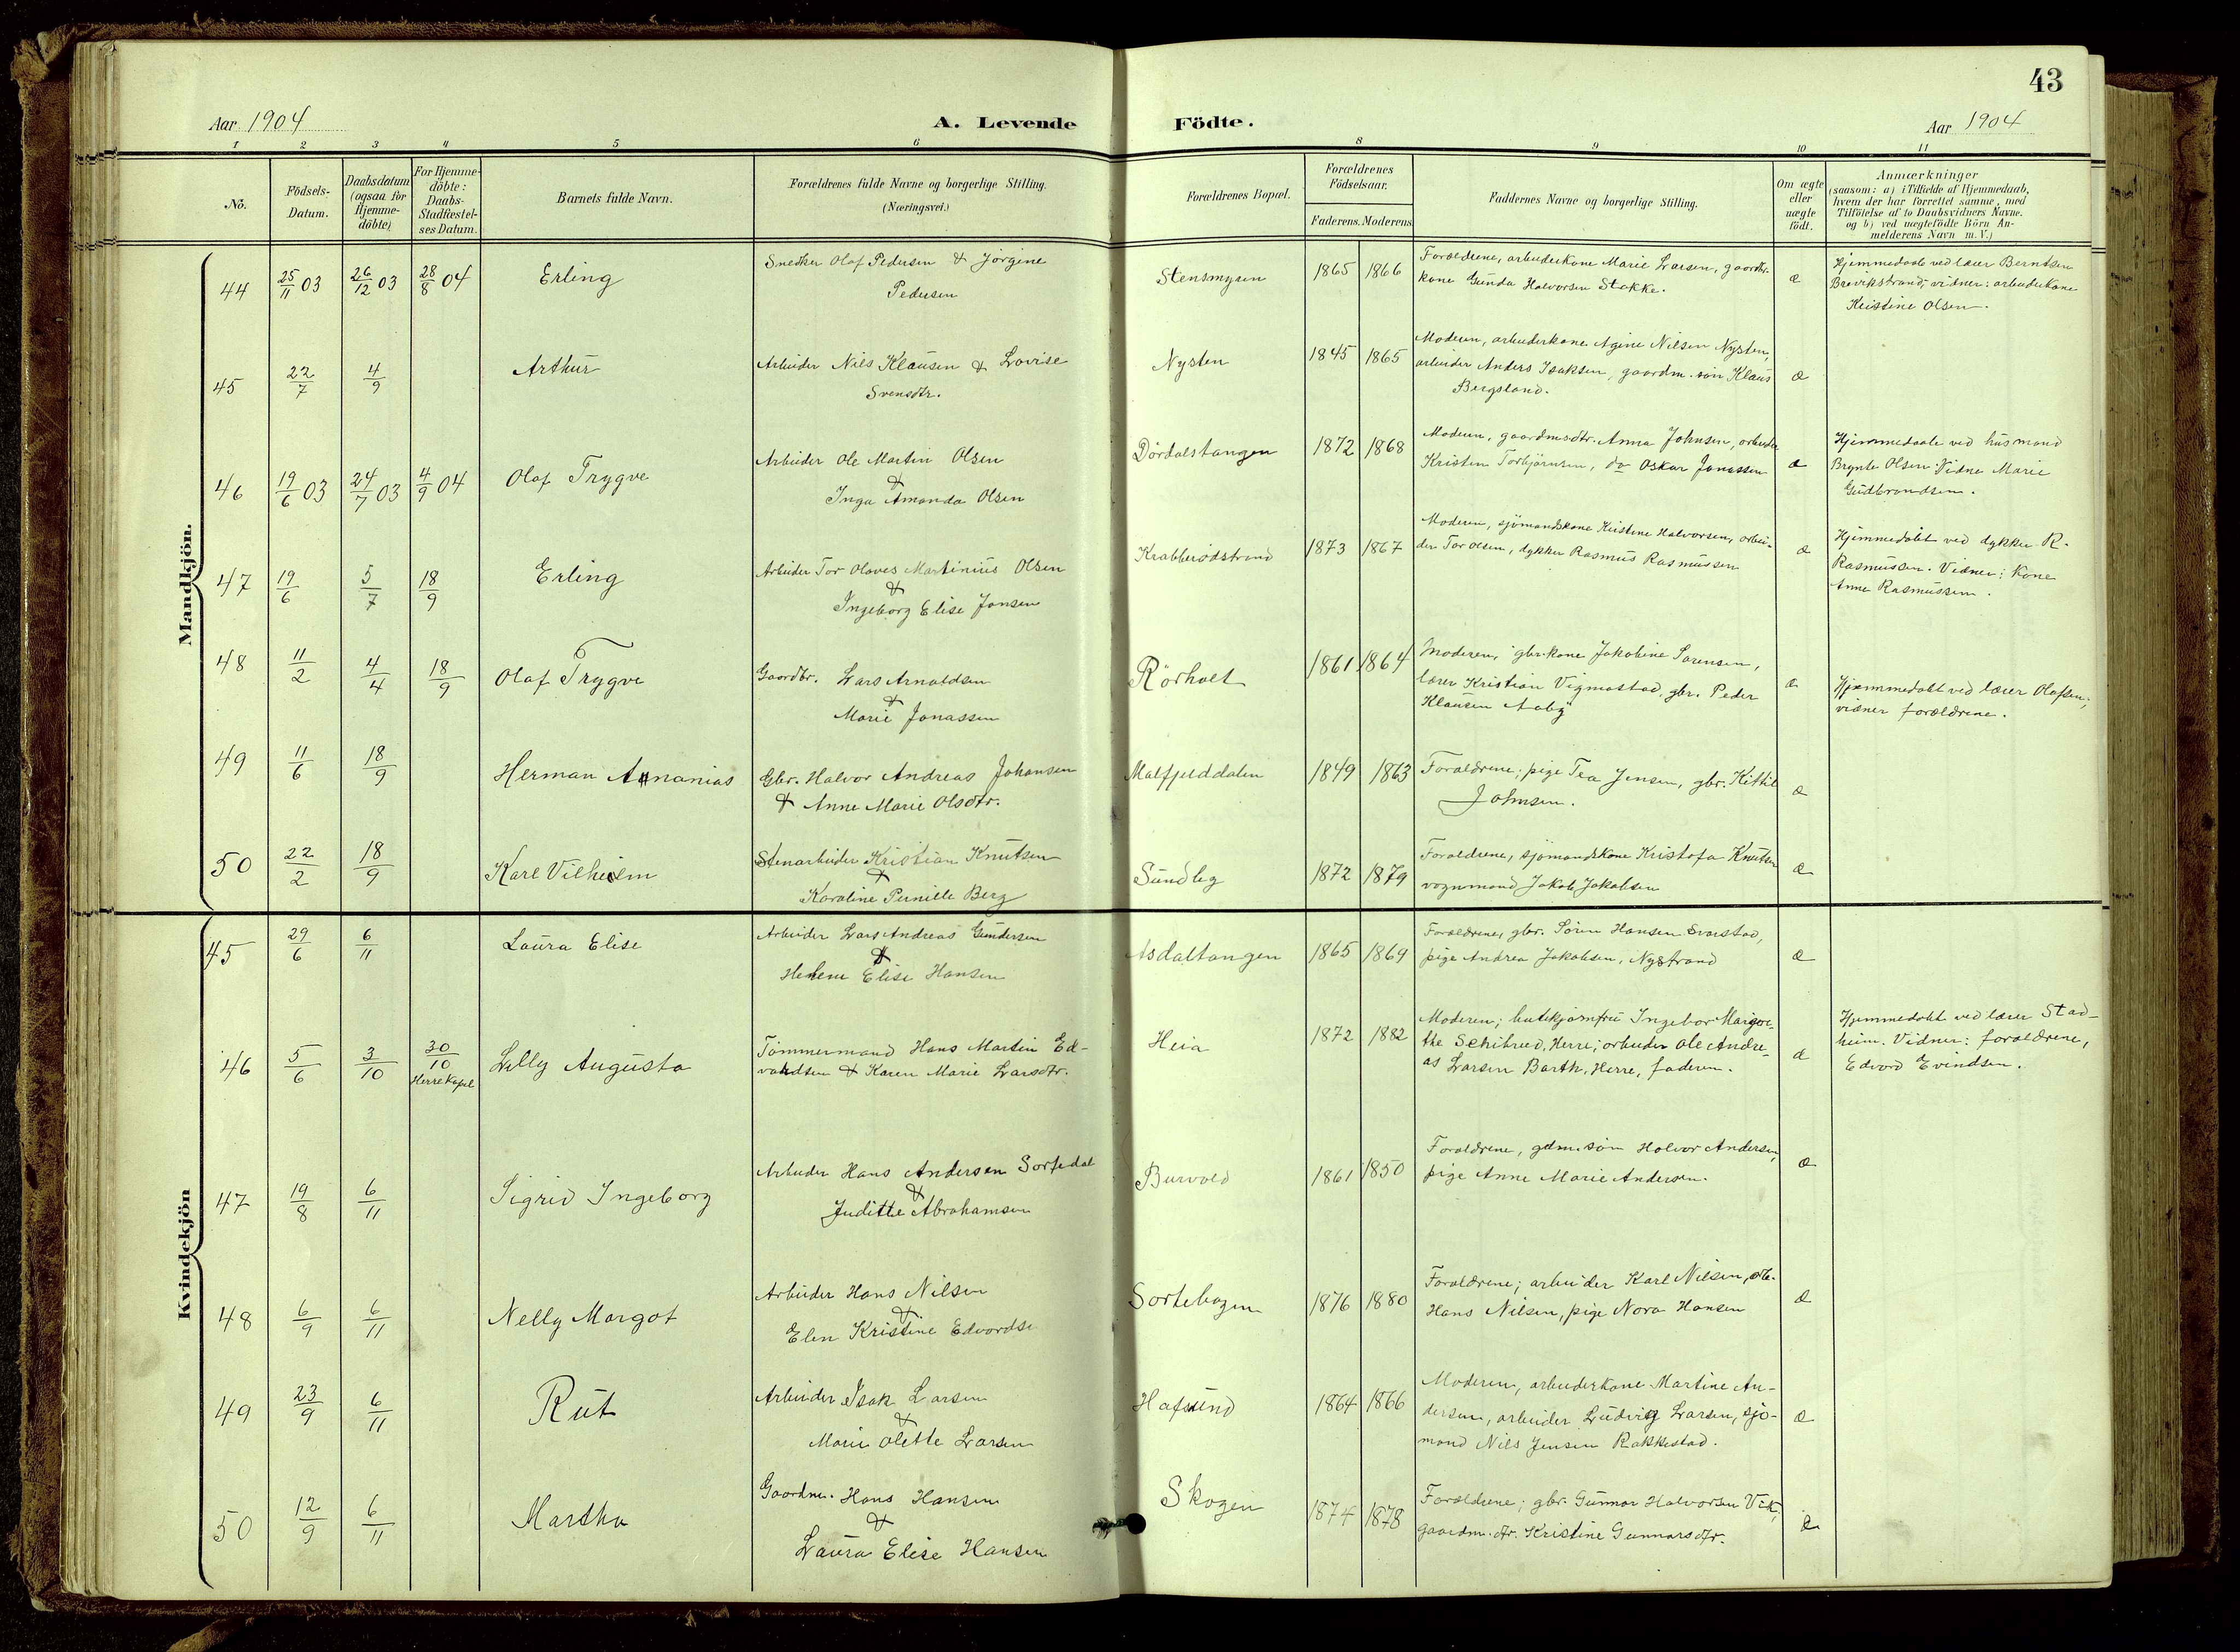 43
Aar 1904
A. Levende
Födte.
Aar 1904
1 2 3 4 5 6 8 9 10 11
No.
Födsels-
Datum.
Daabsdatum
(ogsaa for
Hjemme-
döbte)
For Hjemme-
döbte:
Daabs-
Stadfæstel-
ses Datum.
Barnets fulde Navn.
Forældrenes fulde Navne og borgerlige Stilling.
(Næringsvei.)
Forældrenes Bopæl.
Forældrenes
Födselsaar.
Faderens. Moderens
Faddernes Navne og borgerlige Stilling.
Om ægte
eller
uægte
födt.
Anmærkninger
(saasom: a) i Tilfælde af Hjemmedaab,
hvem der har forrettet samme, med
Tilföielse af to Daabsvidners Navne.
og b) ved uægtefödte Börn An-
melderens Navn m. V.)
Mandkjön.
44 25/11 03 26/12 03 28/8 04 Erling
Snedker Olaf Pedersen & Jörgine
Pedersen
Stensmyren 1865 1866
Forældrene, arbeiderkone Marie Larsen, gaardbr.
kone Gunda Halvorsen Stokke.
æ
Hjemmedøbt ved lærer Berntsen
Brevikstrand; vidner: arbeiderkone
Kristine Olsen.
45 22/7 4/9 Arthur
Arbeider Nils Klausen & Lovise
Svensdtr.
Nysten 1845 1865
Moderen, arbeiderkone Agine Nilsen Nysten,
arbeider Anders Isaksen, gaardm. søn Klaus
Bergsland.
æ
46 19/6 03 24/7 03 4/9 04 Olaf Trygve
Arbeider Ole Martin Olsen
&
Inga Amanda Olsen
Dördalstangen 1872 1868
Moderen, gaardmsdtr. Anna Johnsen, arbeider
Kristen Torbjörnsen, do Oskar Jonassen
æ
Hjemmedøbt ved husmand
Brynte Olsen. Vidne Marie
Gudbrandsen.
47 19/6 5/7 18/9 Erling
Arbeider Tor Olaves Martinius Olsen
&
Ingeborg Elise Jonsen
Krabberødstrand 1873 1867
Moderen, sjömandskone Kristine Halvorsen, arbei-
der Tor Olsen, dykker Rasmus Rasmussen
æ
Hjemmedöbt ved dykker R.
Rasmussen. Vidner: Kone
Anne Rasmussen.
48 11/2 4/4 18/9 Olaf Trygve
Gaardbr. Lars Arnoldsen
&
Marie Jonassen
Rörholt 1861 1864
Moderen, gbr. kone Jakobine Sørensen,
lærer Kristian Vigmostad, gbr. Peder
Klausen Aaby
æ
Hjemmedøbt ved lærer Olafsen;
vidner forældrene.
49 11/6 18/9 Herman Annanias
Gbr. Halvor Andreas Johansen
& Anne Marie Olsdtr.
Malfjelddalen 1849 1863
Forældrene; pige Tea Jensen, gbr. Kittil
Johnsen.
æ
50 22/2 18/9 Karl Vilhelm
Stenarbeider Kristian Knutsen
&
Karoline Pernille Berg
Sundby 1872 1879
Forældrene, sjømandskone Kristofa Knutsen
vognmand Jakob Jakobsen
æ
Kvindekjön
45 29/6 6/11 Laura Elise
Arbeider Lars Andreas Gundersen
&
Helene Elise Hansen
Asdaltangen 1865 1869
Forældrene, gbr. Sören Hansen Svarstad,
pige Andrea Jakobsen, Nystrand
æ
46 5/6 3/10 30/10 Herre Kapel Lilly Augusta
Tömmermand Hans Martin Ed-
vardsen & Karen Marie Larsdtr.
Heia 1872 1882
Moderen; hustru Ingebor Margre-
the Schibred, Herre; arbeider Ole Andre-
as Larsen Barth, Herre, faderen.
æ
Hjemmedøbt ved lærer Stad-
heim. Vidner: forældrene,
Edvard Evindsen.
47 19/8 6/11 Sigrid Ingeborg
Arbeider Hans Andersen Sorfedal
&
Juditte Abrahamsen
Burvold 1861 1850
Forældrene, gdm. søn Halvor Andersen,
pige Anne Marie Andersen.
æ
48 6/9 6/11 Nelly Margot
Arbeider Hans Nilsen
&
Elen Kristine Edvardse
Sortebogen 1876 1880
Forældrene; arbeider Karl Nilsen, arb.
Hans Nilsen, pige Nora Hansen
æ
49 23/9 6/11 Rut
Arbeider Isak Larsen
&
Marie Olette Larsen
Hafsund 1864 1866
Moderen, arbeiderkone Martine An-
dersen, arbeider Ludvig Larsen, sjö-
mand Nils Jensen Rakkestad.
æ
50 12/9 6/11 Martha
Gaardm. Hans Hansen
&
Laura Elise Hansen
Skogen 1874 1878
Forældrene; gbr. Gunnar Halvorsen Vik,
gaardm. dtr. Kristine Gunnarsdtr.
æ